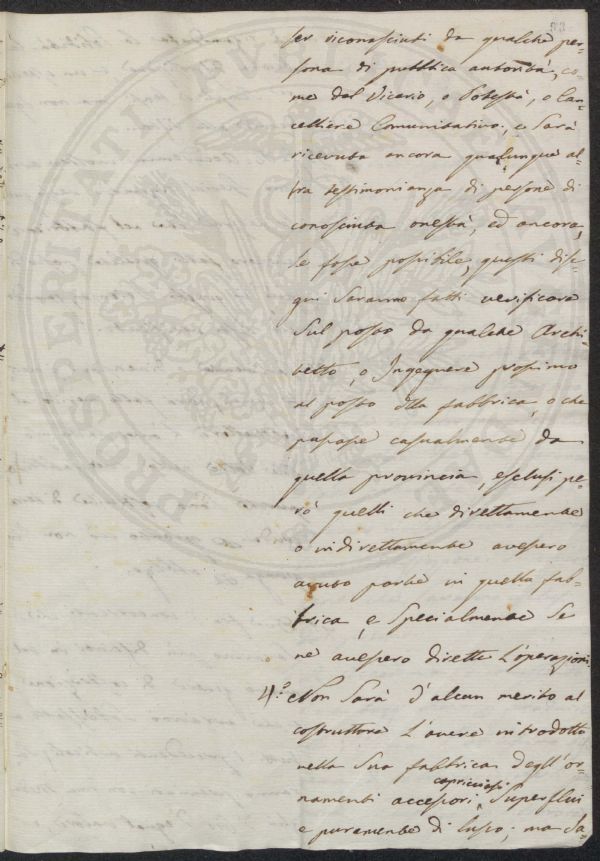 83
ser riconosciuti da qualche per-
sona di pubblica autorità, co-
me dal Vicario, o Potestà, o Can-
celliere Comunitativo; e Sarà
ricevuta ancora qualunque al-
tra testimonianza di persone di
conosciuta onestà, ed ancora,
se fosse possibile, questi dise-
gni Saranno fatti verificare
Sul posto da qualche Archi-
tetto, o Ingegnere prossimo
al posto della fabbrica, o che
passasse casualmente da
quella provincia, esclusi pe-
rò quelli che direttamente
o indirettamente avessero
avuto parte in quella fab-
brica, e Specialmente Se
ne avessero dirette L'operazioni.
4.° Non Sarà d'alcun merito al
costruttore L'avere introdotto
nella Sua fabbrica degl'or-
namenti accessori, capricciosi Superflui
e puramente di lusso; ma Sa-
PROSPERITATI PVBLICAE